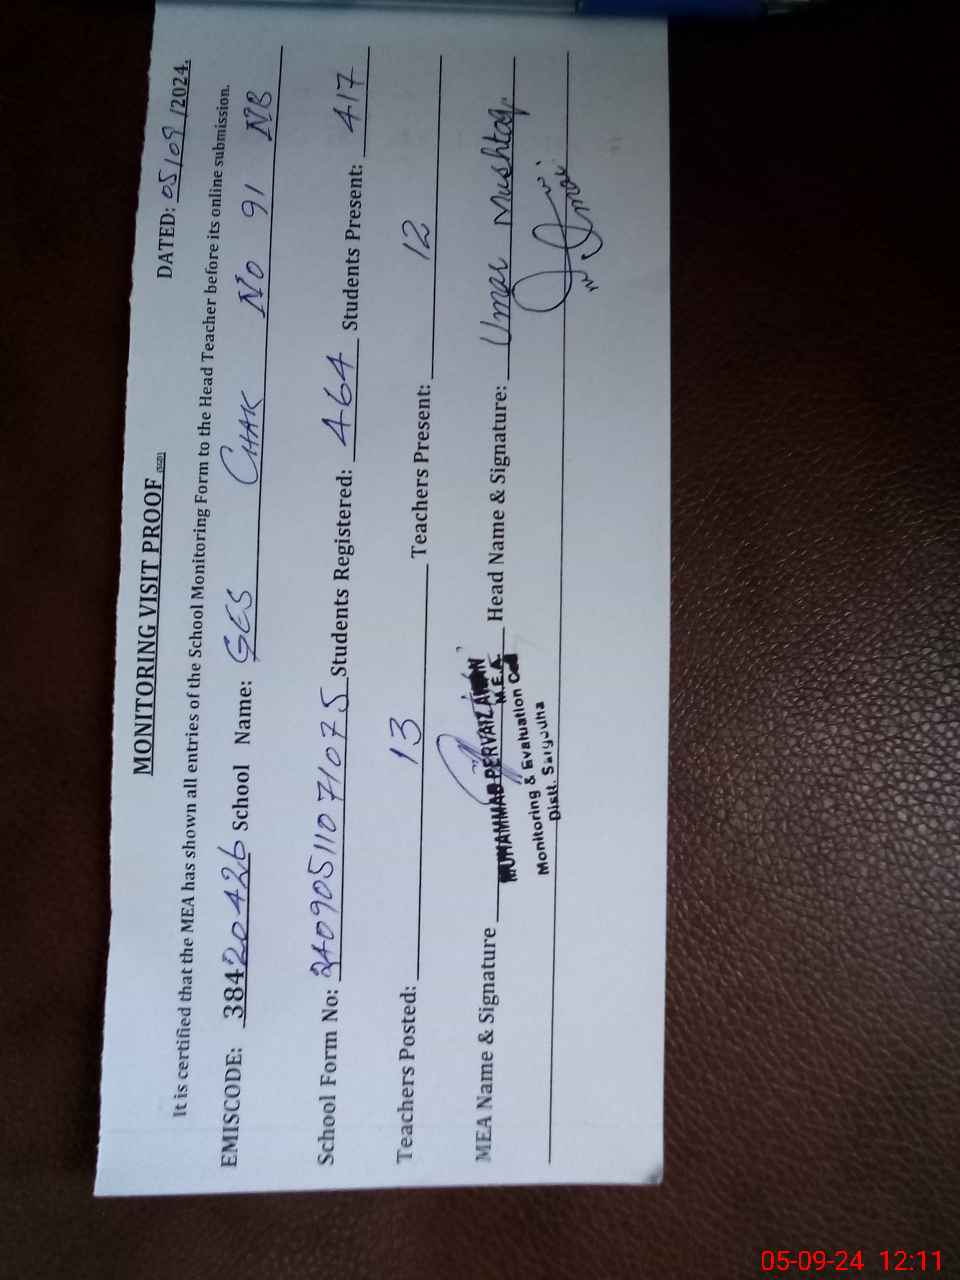 MONITORING VISIT PROOF (SGD)
DATED: 05/09/2024.
It is certified that the MEA has shown all entries of the School Monitoring Form to the Head Teacher before its online submission.
EMISCODE: 38420426 School Name: GES CHAK NO 91 NB
School Form No: 24090511071075 Students Registered: 464 Students Present: 417
Teachers Posted: 13 Teachers Present: 12
MEA Name & Signature Head Name & Signature: Umar Mushtaq
MUHAMMAD PERVAIZ
M.E.A.
Monitoring & Evaluation Cell
Distt. Sargodha
05-09-24 12:11